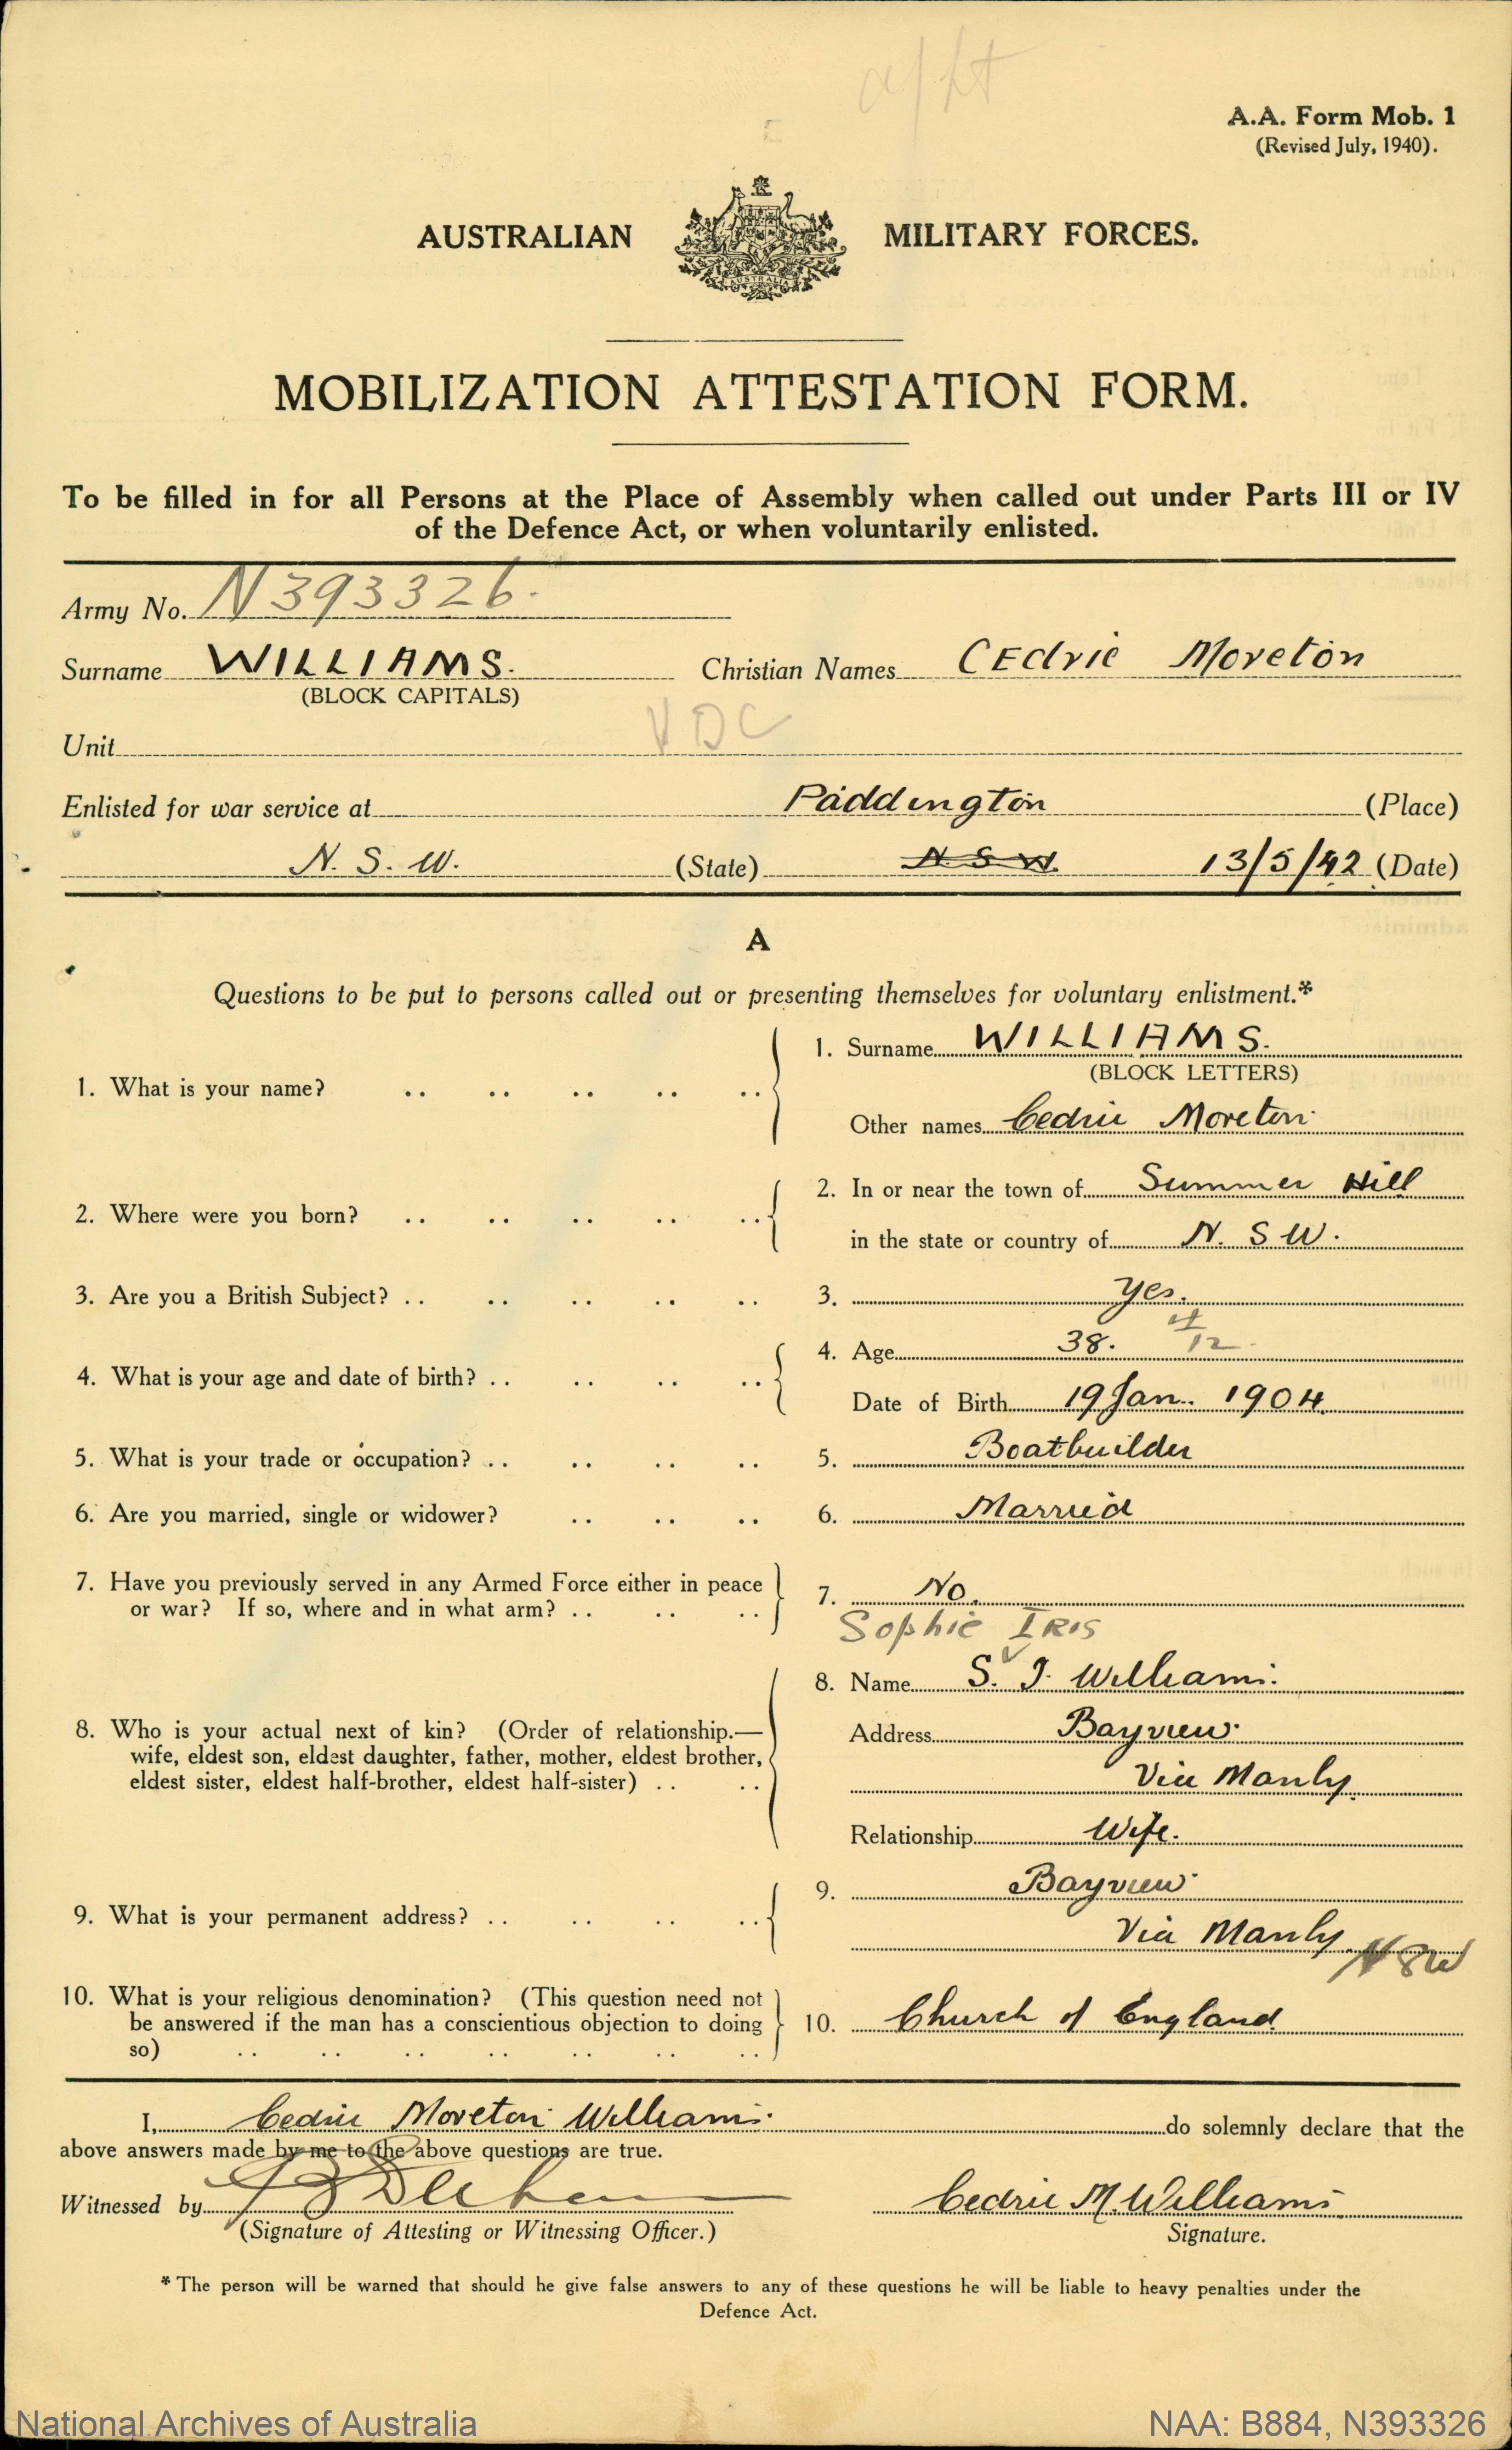 a/Lt
A.A. Form Mob. 1
(Revised July, 1940).
AUSTRALIAN MILITARY FORCES.
AUSTRALIA
MOBILIZATION ATTESTATION FORM.
To be filled in for all Persons at the Place of Assembly when called out under Parts III or IV
of the Defence Act, or when voluntarily enlisted.
Army No. N393326.
Surname WILLIAMS. Christian Names CEdric Moreton
(BLOCK CAPITALS)
VDC
Unit
Enlisted for war service at Paddington (Place)
N. S. W. (State) N S W. 13/5/42 (Date)
A
Questions to be put to persons called out or presenting themselves for voluntary enlistment.*
1. What is your name? .. .. .. .. .. 1. Surname WILLIAMS.
(BLOCK LETTERS)
Other names Cedric Moreton
2. Where were you born? .. .. .. .. .. 2. In or near the town of Summer Hill
in the state or country of N. S W.
3. Are you a British Subject? .. .. .. .. .. 3. Yes.
4. What is your age and date of birth? .. .. .. .. 4. Age 38. 4/12
Date of Birth 19 Jan. 1904.
5. What is your trade or occupation? .. .. .. .. 5. Boatbuilder
6. Are you married, single or widower? .. .. .. 6. Married
7. Have you previously served in any Armed Force either in peace
or war? If so, where and in what arm? .. .. .. 7. No.
Sophie IRIS
8. Who is your actual next of kin? (Order of relationship.—
wife, eldest son, eldest daughter, father, mother, eldest brother,
eldest sister, eldest half-brother, eldest half-sister) .. ..
8. Name S. I. Williams.
Address Bayview.
Via Manly.
Relationship Wife.
9. What is your permanent address? .. .. .. .. 9. Bayview.
Via Manly NSW
10. What is your religious denomination? (This question need not
be answered if the man has a conscientious objection to doing
so) .. .. .. .. .. .. ..
10. Church of England
I, Cedric Moreton Williams. do solemnly declare that the
above answers made by me to the above questions are true.
Witnessed by Cedric M. Williams
(Signature of Attesting or Witnessing Officer.) Signature.
* The person will be warned that should he give false answers to any of these questions he will be liable to heavy penalties under the
Defence Act.
National Archives of Australia NAA: B884, N393326